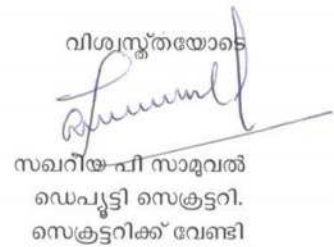 വിശ്വസ്തതയോടെ
സഖറിയ പി സാമുവൽ
ഡെപ്യൂട്ടി സെക്രട്ടറി.
സെക്രട്ടറിക്ക് വേണ്ടി